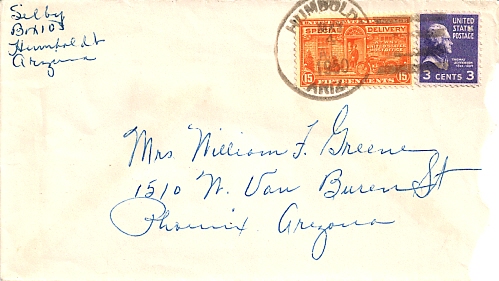 Selby
Box 105
Humboldt
Arizona
HUMBOLDT
ARIZ.
UNITED STATES POSTAGE
SPECIAL DELIVERY
15 15
FIFTEEN CENTS
UNITED
STATES
POSTAGE
THOMAS
JEFFERSON
3 CENTS 3
Mrs William F. Greene
1510 W. Van Buren St
Phoenix Arizona